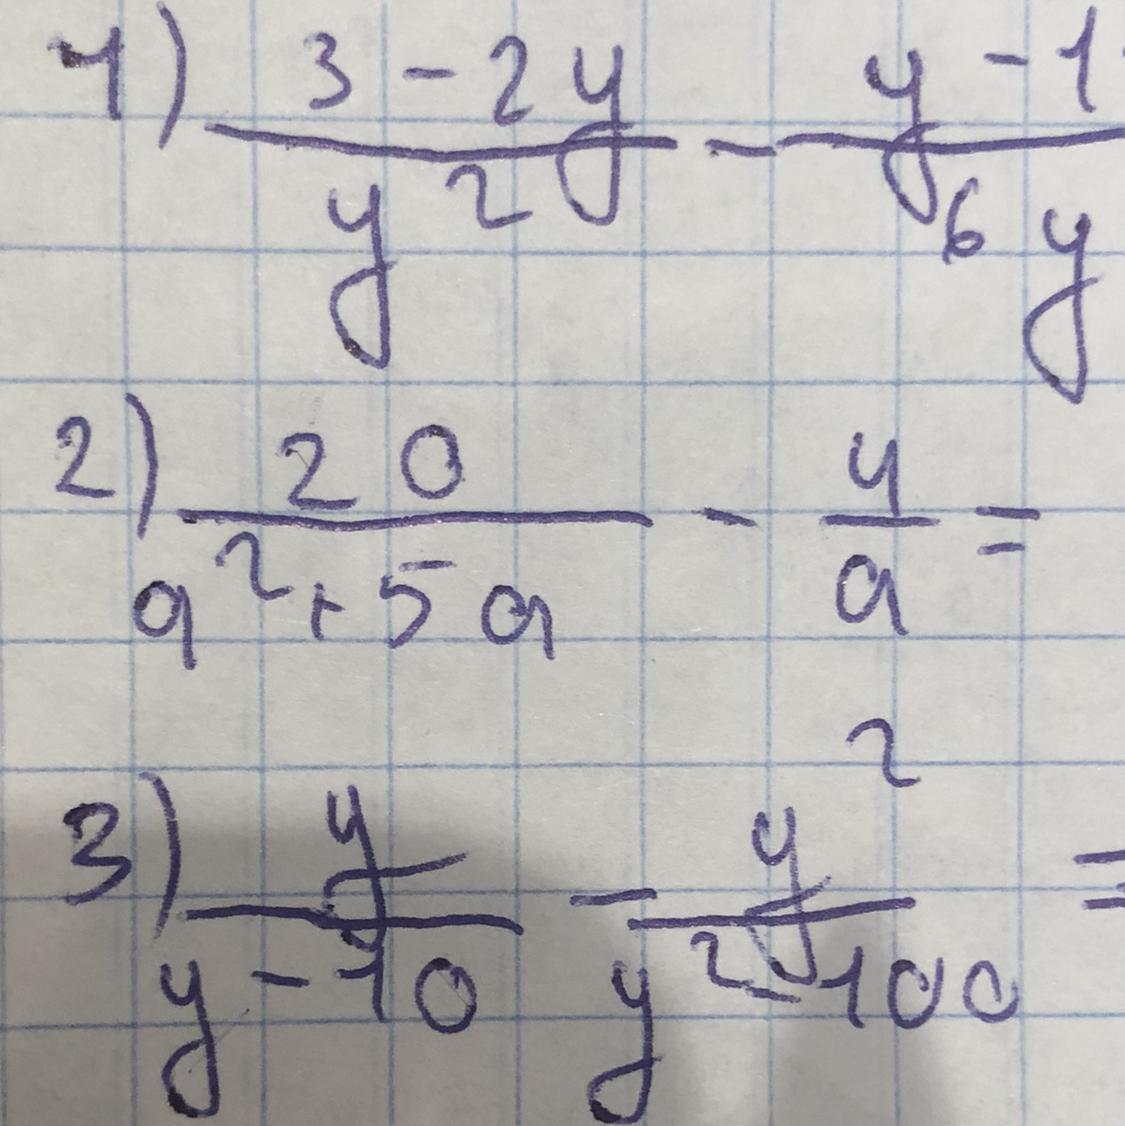 1) (3 - 2y)/(y²) - (y - 1)/(6y)
2) 20/(a² + 5a) - 4/a =
3) y/(y - 10) - y²/(y² - 100) =